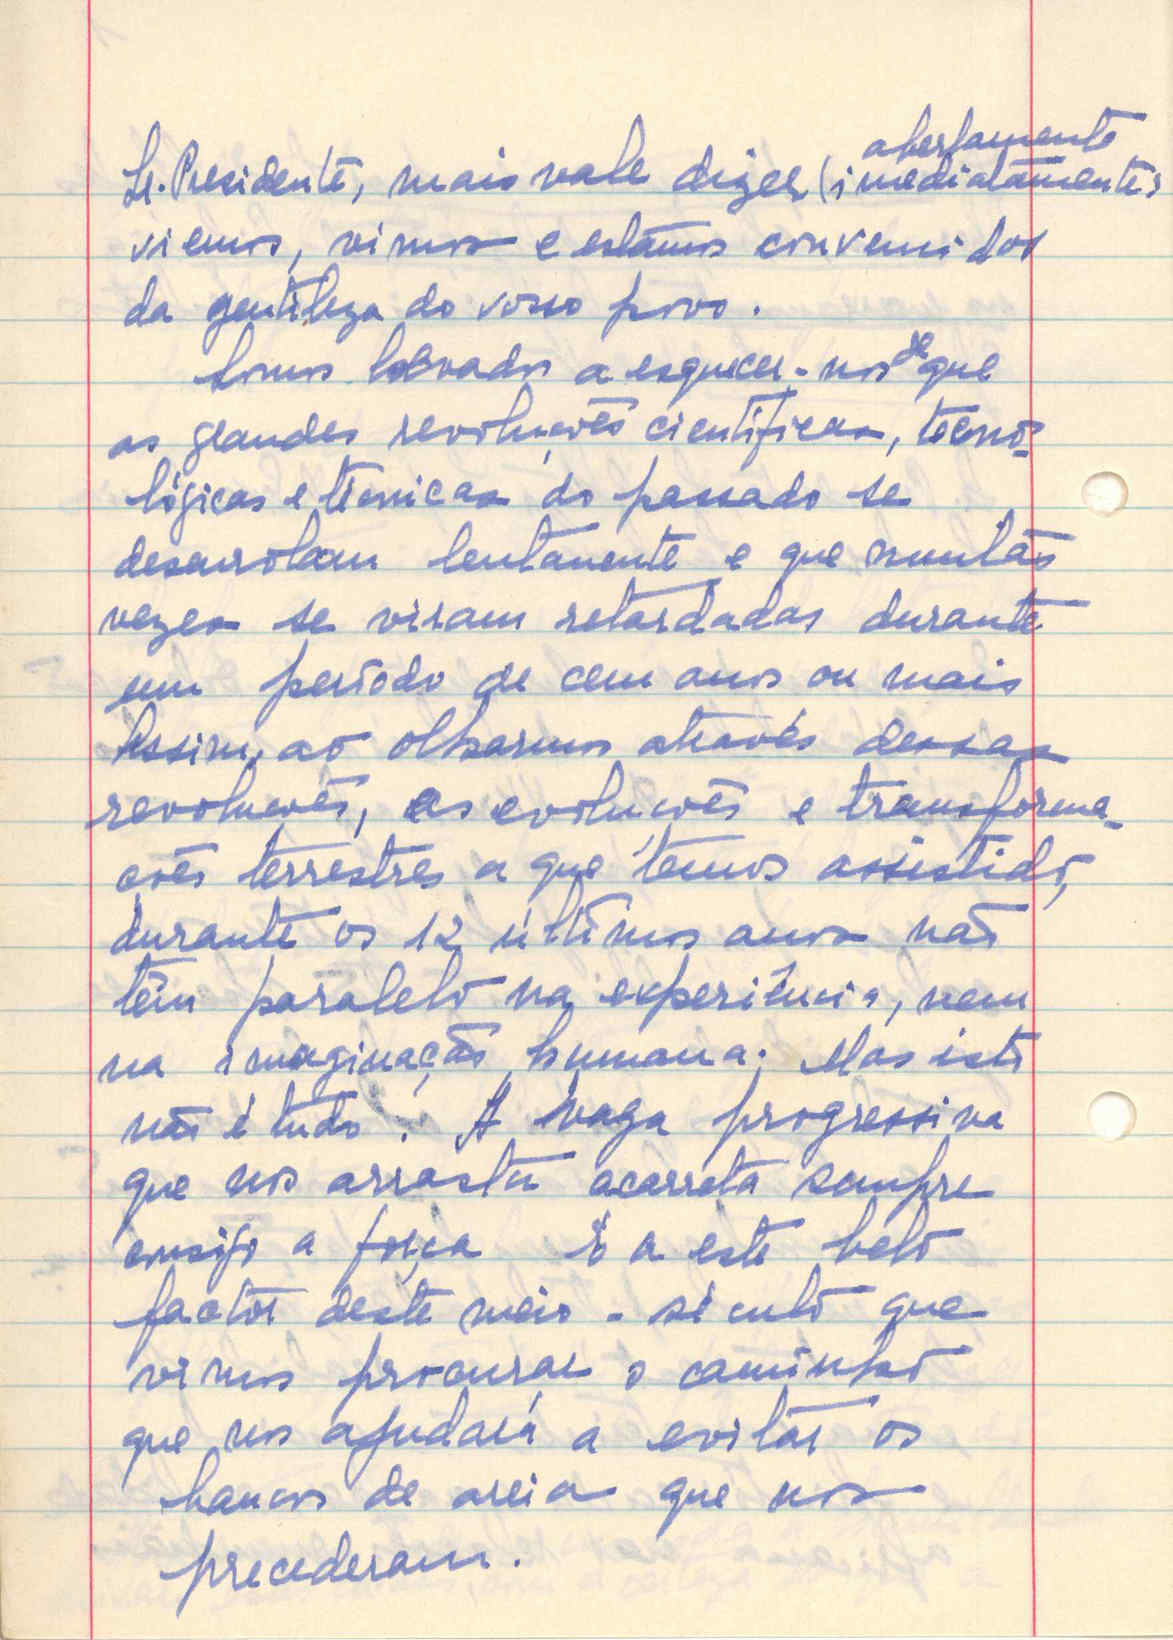 abertamente
Sr. Presidente, mais vale dizer (imediatamente)
viemos, vimos e estamos convencidos
da gentileza do vosso povo.
de
Somos levados a esquecer-nos que
as grandes revoluções científicas, tecno-
lógicas e técnicas do passado se
desenrolam lentamente e que muitas
vezes se viram retardadas durante
um período de cem anos ou mais
Assim, ao olharmos através dessas
revoluções, as evoluções e transforma-
ções terrestres a que temos assistido,
durante os 12 últimos anos não
têm paralelo na experiência, nem
na imaginação humana. Mas isto
não é tudo. A vaga progressiva
que nos arrasta acarreta sempre
consigo a força E a este belo
factor deste meio-século que
vimos procurar o caminho
que nos ajudará a evitar os
bancos de areia que nos
precederam.